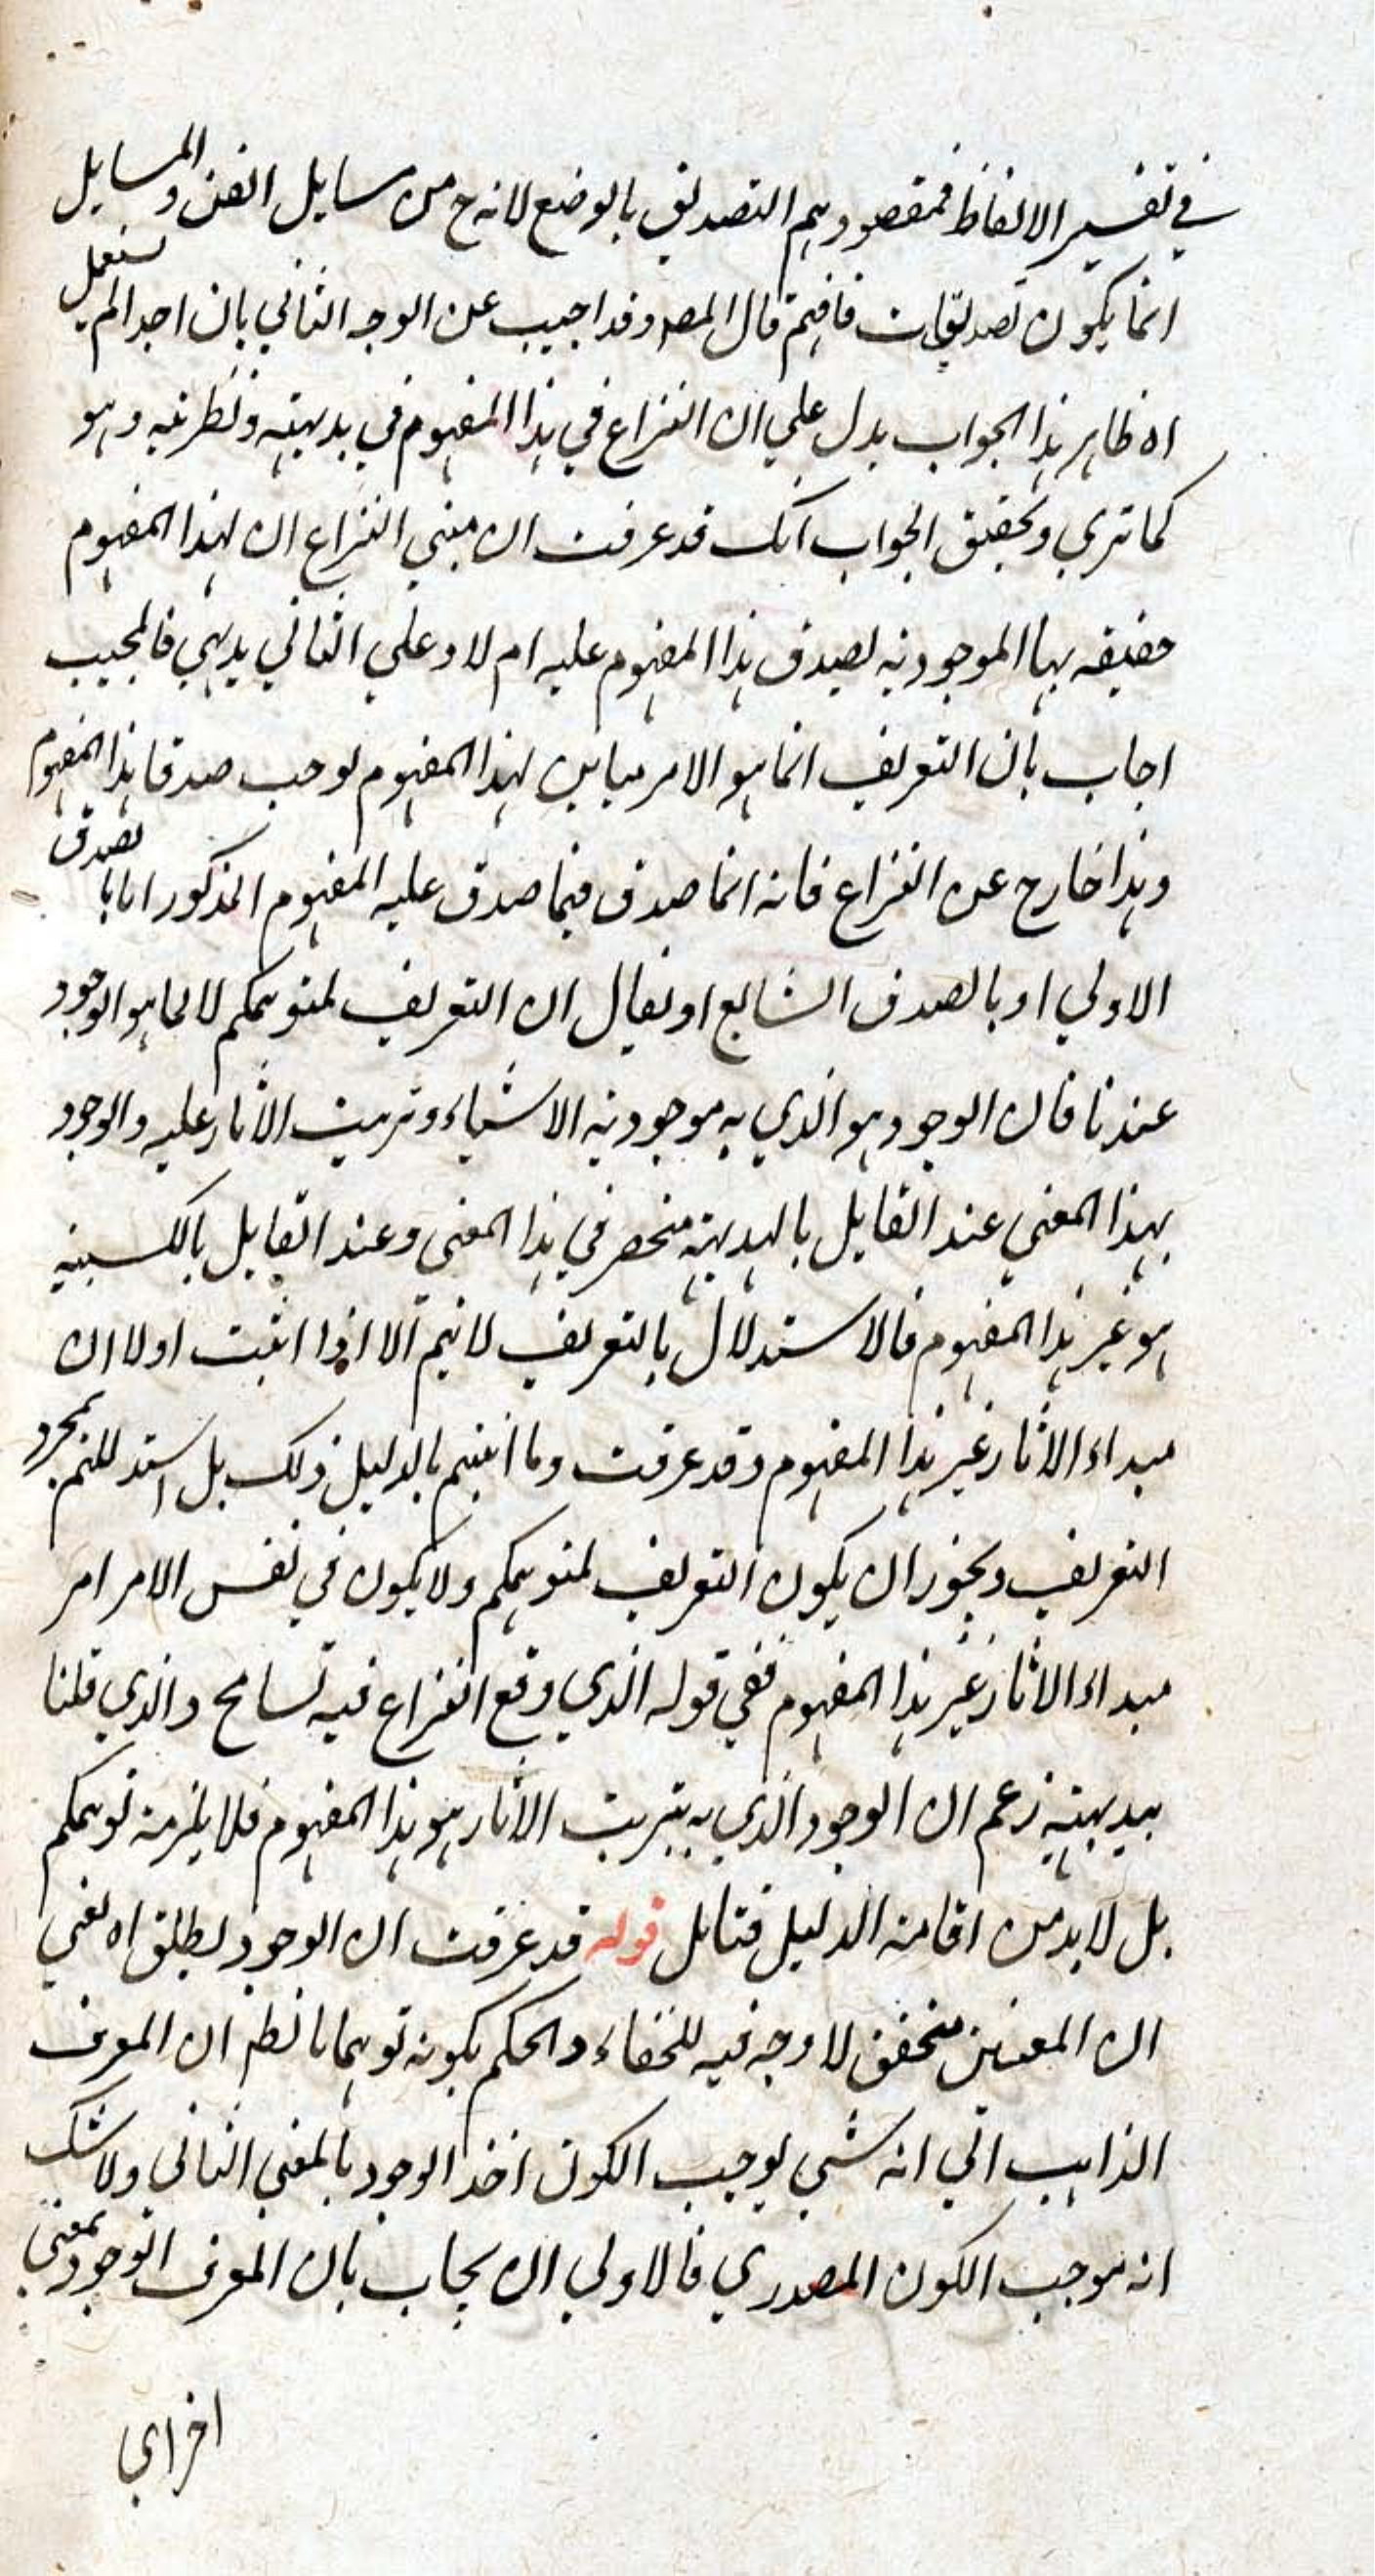 في تفسير الالفاظ فمقصودهم التصديق بالوضع لانه ح من مسايل الفن والمسايل
انما يكون تصديقات فافهم قال المصد وقد اجيب عن الوجه الثاني بان احدا لم يستعمل
اه ظاهر هذا الجواب يدل علي ان النزاع في هذا المفهوم في بديهته ونظريته وهو
كما تري وتحقيق الجواب انك قد عرفت ان مبني النزاع ان لهذا المفهوم
حقيقه بها الموجوديه يصدق هذا المفهوم عليه ام لا وعلي الثاني بديهي فالمجيب
اجاب بان التعريف انما هو الامر مباين لهذا المفهوم يوجب صدقا هذا المفهوم
وهذا خارج عن النزاع فانه انما صدق فيما صدق عليه المفهوم المذكور اما بالصدق
الاولي او بالصدق الشايع او نقال ان التعريف لمتوهمكم لا لما هو الوجود
عندنا فان الوجود هو الذي به موجوديه الاشياء وترتب الاثار عليه والوجود
بهذا المعني عند القايل بالبديهته منحصر في هذا المعني وعند القايل بالكسبيه
هو غير هذا المفهوم فالاستدلال بالتعريف لا يتم الا اذا اثبت اولا ان
مبداء الاثار غير هذا المفهوم وقد عرفت وما اثبتم بالدليل ذلك بل استدللتم بمجرد
التعريف ويجوز ان يكون التعريف لمتوهمكم ولا يكون في نفس الامر امر
مبداء الاثار غير هذا المفهوم ففي قوله الذي وقع النزاع فيه تسامح والذي قلنا
ببديهته زعم ان الوجود الذي به يترتب الاثار هو هذا المفهوم فلا يلزمه توهمكم
بل لا بد من اقامته الدليل فتامل قوله قد عرفت ان الوجود يطلق اه يعني
ان المعنيين متحقق لا وجه فيه للخفاء والحكم بكونه توهما بانظم ان المعرف
الذاهب الي انه شي يوجب الكون اخذ الوجود بالمعني الثاني ولا شك
انه موجب الكون المصدري فالاولي ان يجاب بان المعرف الوجود بمعني
اخراي